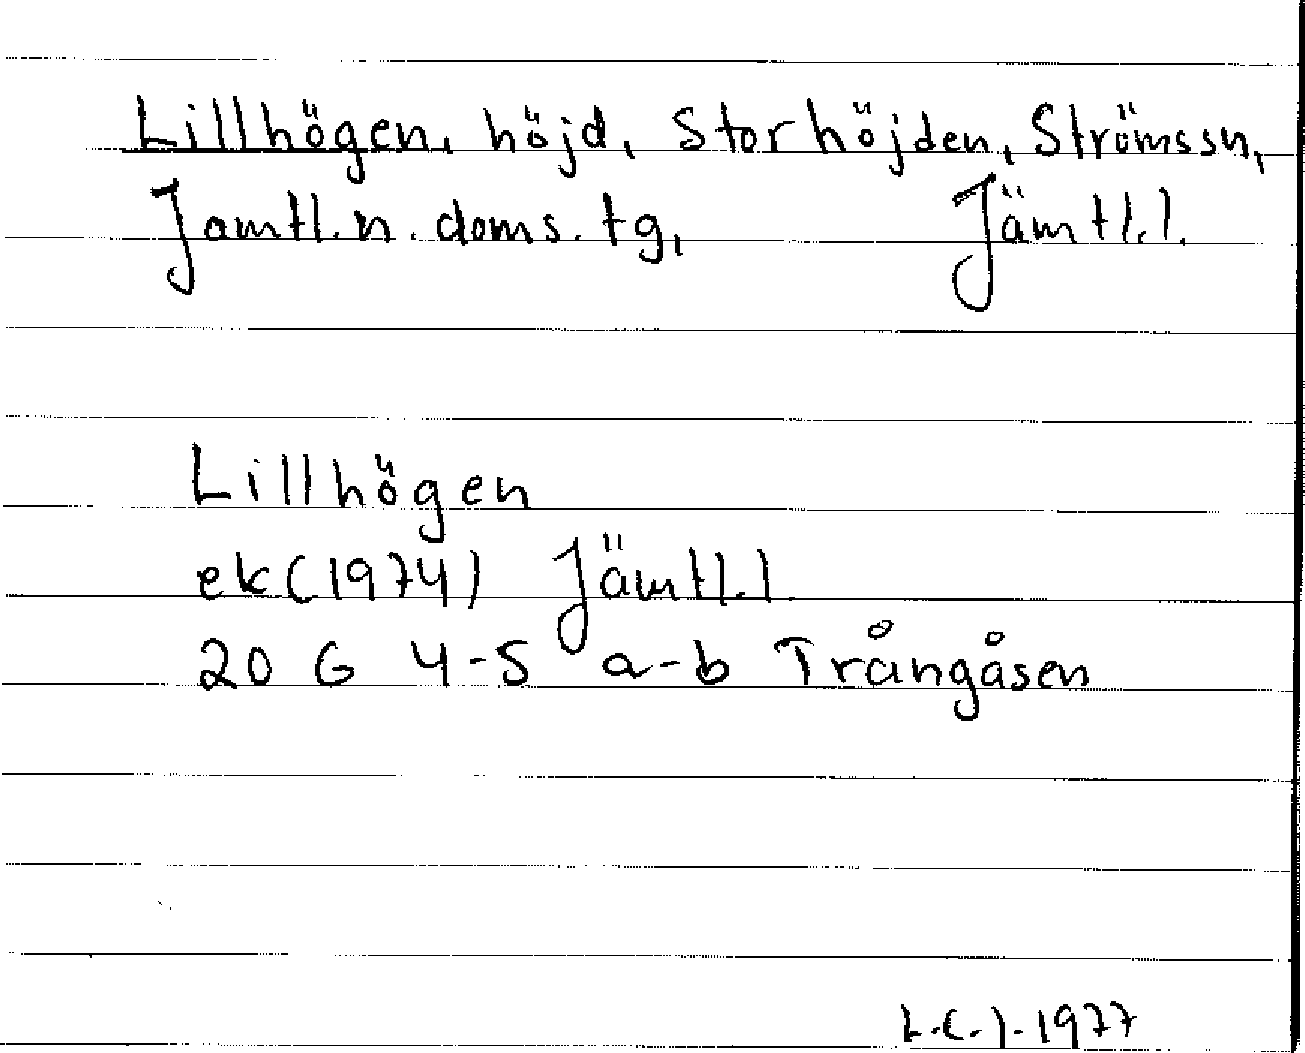 Lillhögen, höjd, Storhöjden, Strömssn,
Jamtl.n.doms.tg, Jämtl.l.
Lillhögen
ek(1974) Jämtl.l
20 G 4-5 a-b Trångåsen
L.C.J.1977